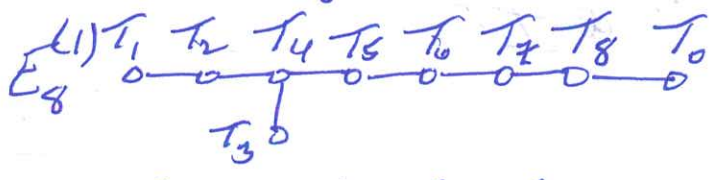 E₈⁽¹⁾ T₁ T₂ T₄ T₅ T₆ T₇ T₈ T₀
T₃